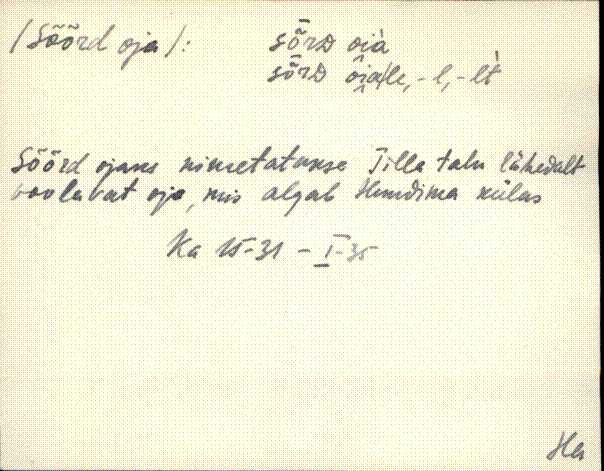 /Sõõrd oja/: sȭrD oi̯à
sȭrD ôi̯a|le, -l, -lt̀
Sõõrd ojaks nimetatakse Tilla talu lähedalt
voolavat oja, mis algab Hundima külas
Ka 15-31 - I-35